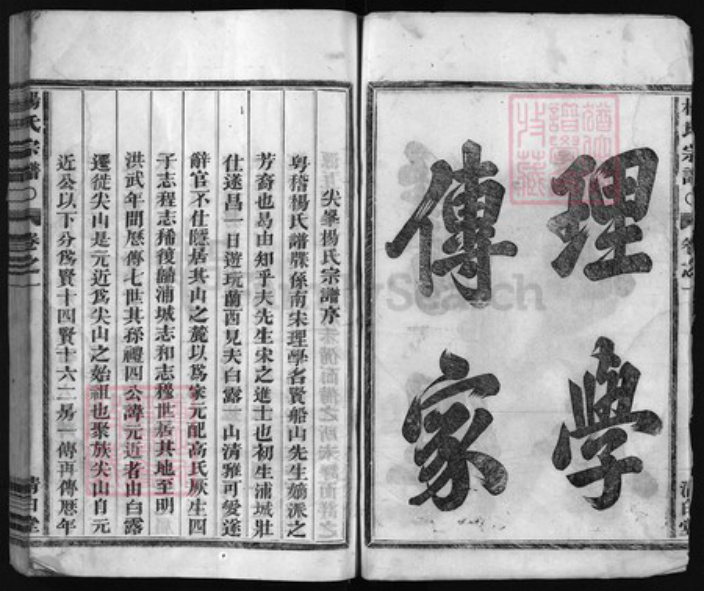 理學
傳家
楊氏宗譜
卷之一
清白堂
尖峯楊氏宗譜序
粤稽楊氏譜牒係南宋理學名賢船山先生嫡派之
芳裔也曷由知乎夫先生宋之進士也初生浦城壯
仕遂昌一日遊玩蘭西見夫白露一山清雅可愛遂
辭官不仕隱居其山之麓以爲家元配高氏厥生四
子志程志稀復歸浦城志和志穆世居其地至明
洪武年間歷傳七世其孫禮四公諱元近者由白露
遷徙尖山是元近爲尖山之始祖也聚族尖山自元
近公以下分爲賢十四賢十六二房一傳再傳歷年
楊氏宗譜
卷之一
清白堂